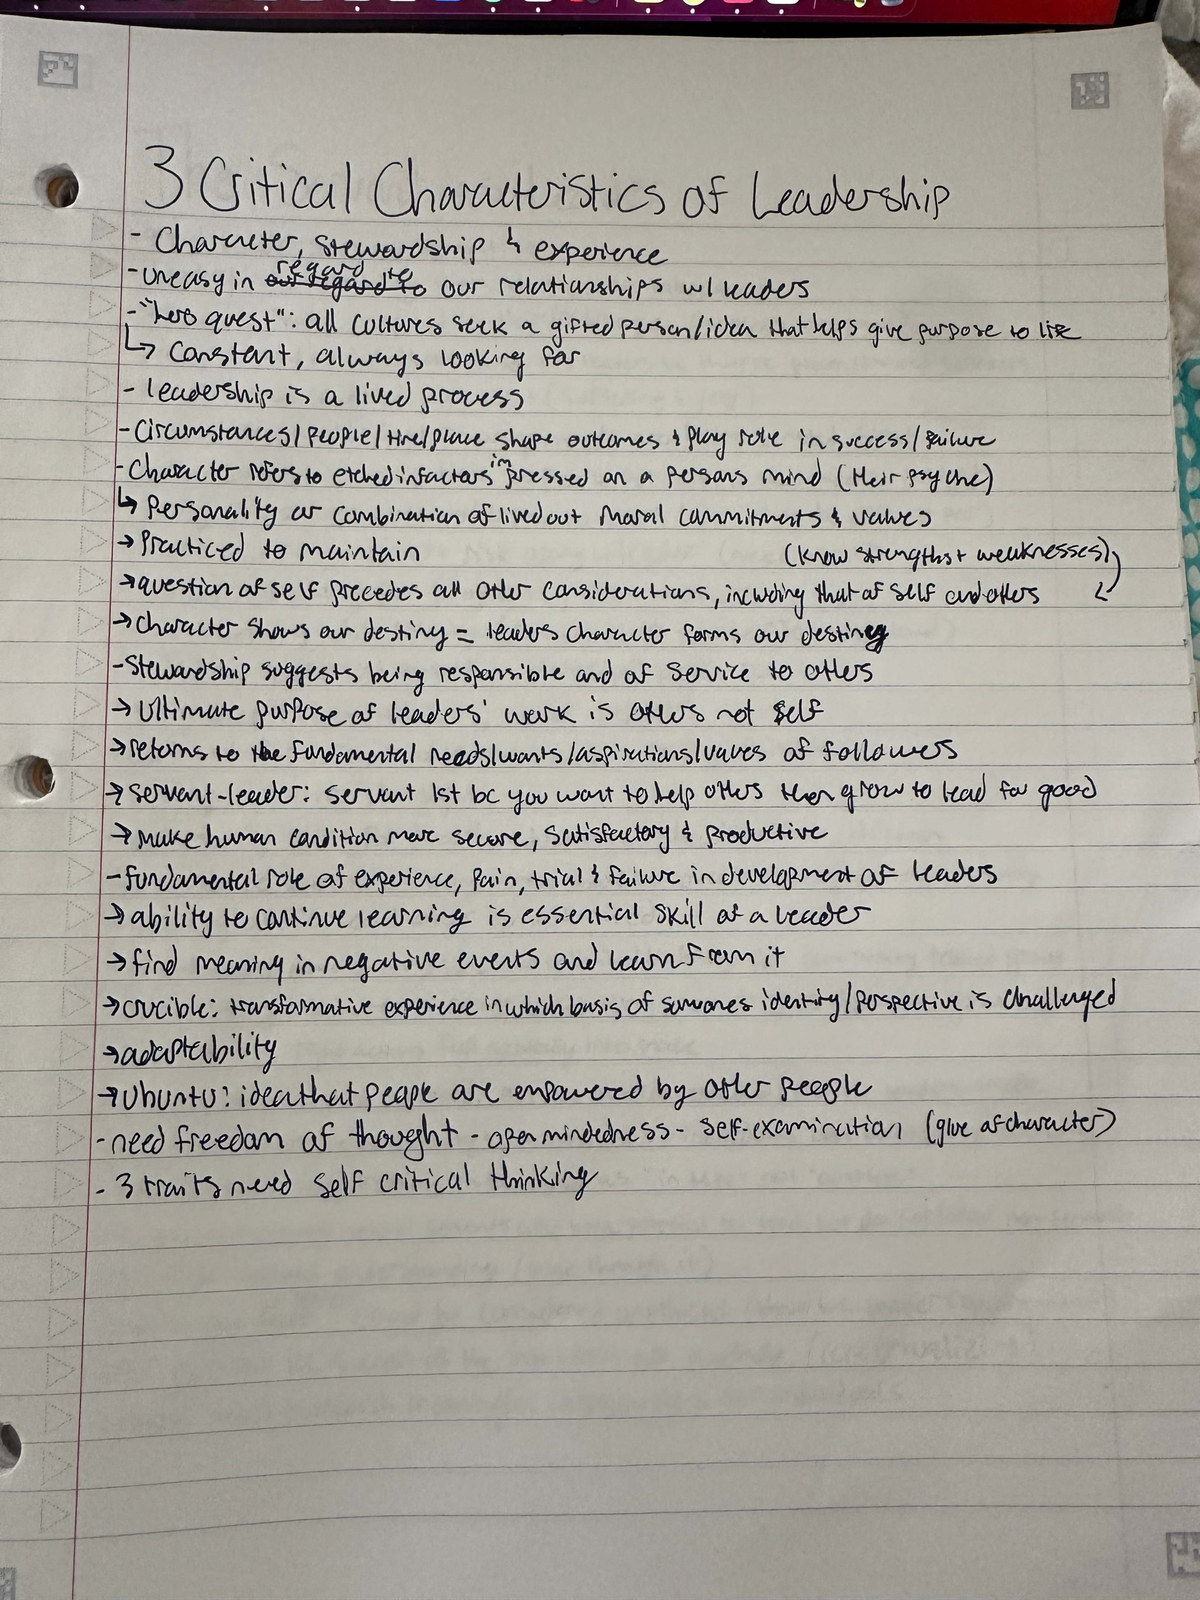 3 Critical Characteristics of Leadership
- Character, stewardship & experience
- uneasy in regard to our relationships w/ leaders
- "hero quest": all cultures seek a gifted person/idea that helps give purpose to life
↳ constant, always looking for
- leadership is a lived process
- Circumstances/people/time/place shape outcomes & play role in success/failure
- Character refers to etched in factors impressed on a persons mind (their psyche)
↳ Personality or combination of lived out moral commitments & values
→ Practiced to maintain (know strengths + weaknesses)
→ question of self precedes all other considerations, including that of self and others
→ Character shows our destiny = leaders character forms our destiny
- Stewardship suggests being responsible and of service to others
→ Ultimate purpose of leaders' work is others not self
→ returns to the fundamental needs/wants/aspirations/values of followers
→ servant-leader: servant 1st bc you want to help others then grow to lead for good
→ Make human condition more secure, satisfactory & productive
- fundamental role of experience, pain, trial & failure in development of leaders
→ ability to continue learning is essential skill of a leader
→ find meaning in negative events and learn from it
→ crucible: transformative experience in which basis of someones identity/perspective is challenged
→ adaptability
→ Ubuntu: idea that people are empowered by other people
- need freedom of thought - open mindedness - self-examination (glue of character)
- 3 traits need self critical thinking